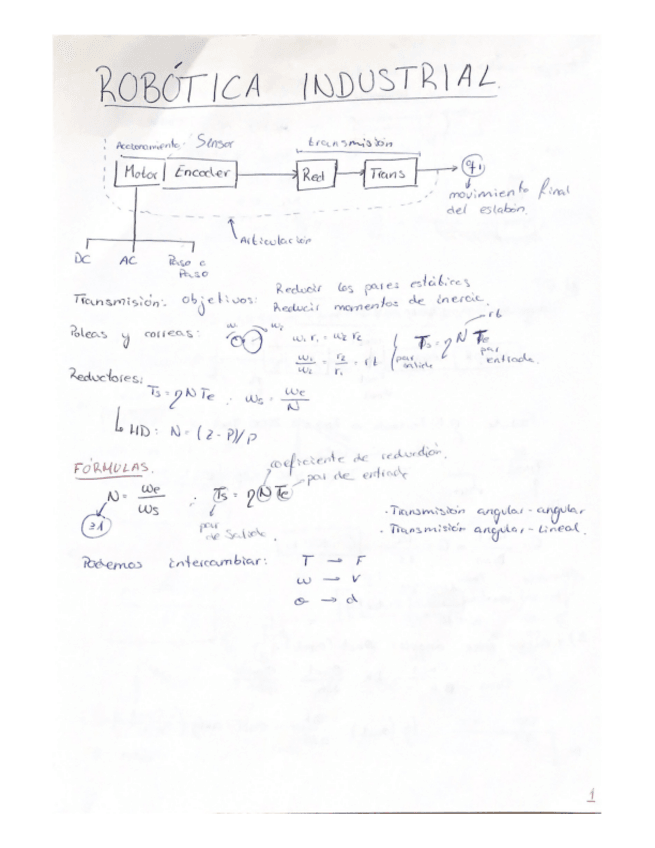 ROBÓTICA INDUSTRIAL.
Accionamiento. Sensor transmisión
Motor Encoder Red Trans q1
movimiento final
del eslabón.
Articulación
DC AC Paso a
Paso
Transmisión: objetivos: Reducir los pares estáticos
Reducir momentos de inercia.
Poleas y correas: w1 w2 w1 r1 = w2 r2 Ts = η N Te rt
w1/w2 = r2/r1 = rt par salida par entrada.
Reductores:
Ts = η N Te ws = we/N
HD: N = (z - P)/P
FÓRMULAS. coeficiente de reducción.
N = we/ws ; Ts = η N Te par de entrada
≥1 par
de salida.
· Transmisión angular - angular
· Transmisión angular - Lineal.
Podemos intercambiar: T → F
w → v
θ → d
1